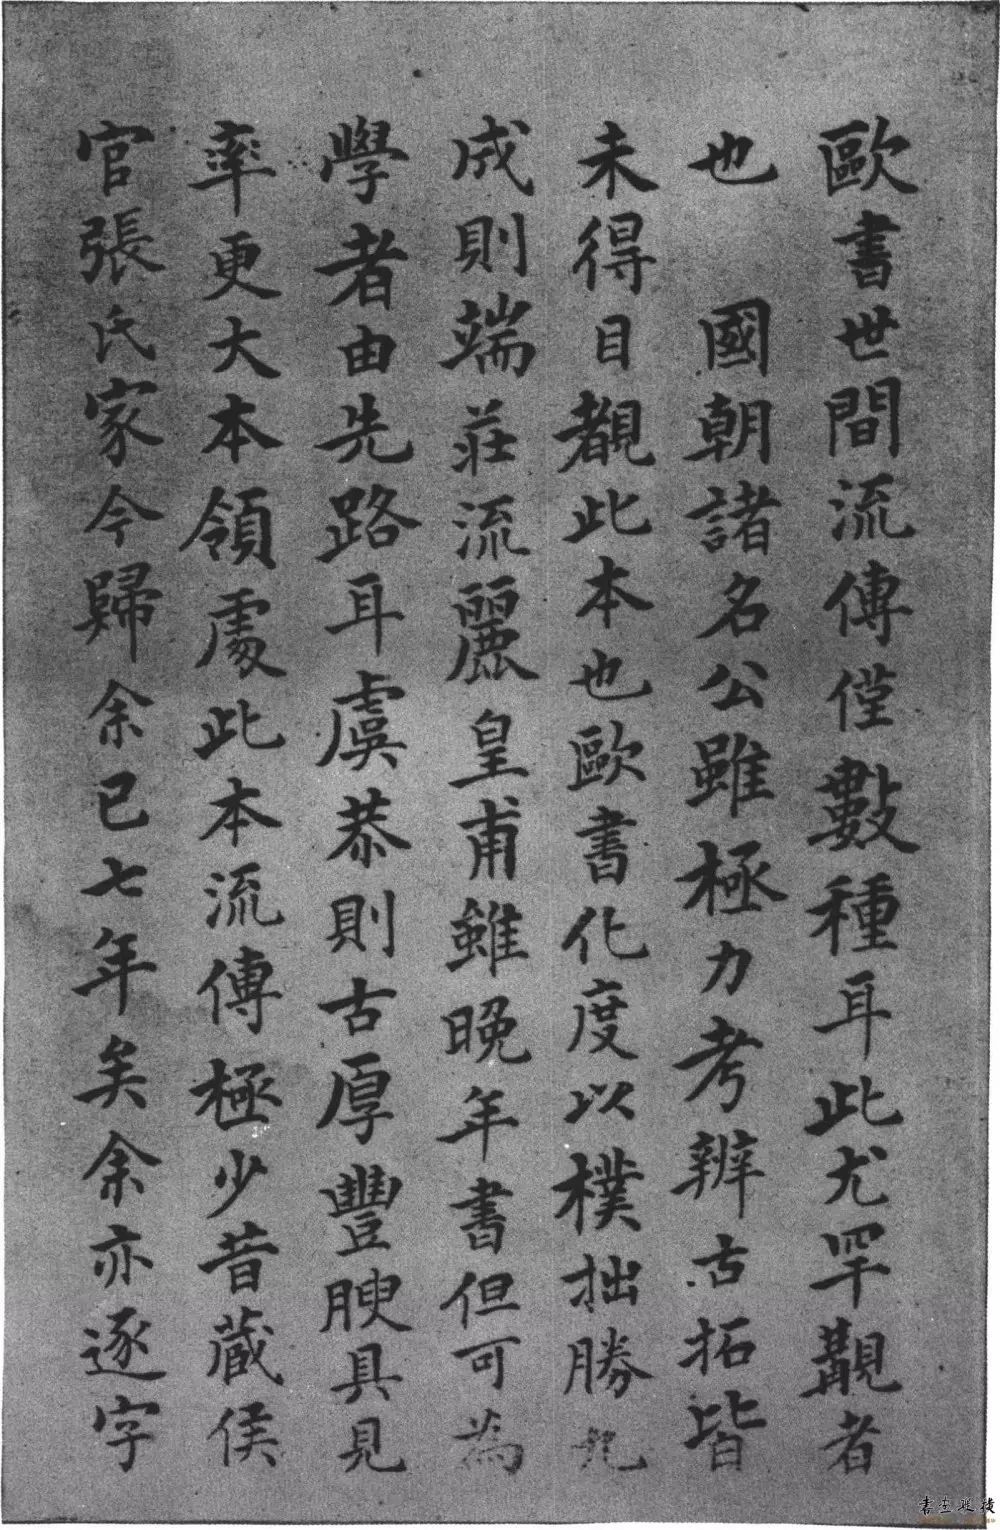 歐書世間流傳僅數種耳此尤罕覯者
也　國朝諸名公雖極力考辨古拓皆
未得目覩此本也歐書化度以樸拙勝九
成則端莊流麗皇甫雖晚年書但可為
學者由先路耳虞恭則古厚豐腴具見
率更大本領處此本流傳極少昔藏侯
官張氏家今歸余已七年矣余亦逐字